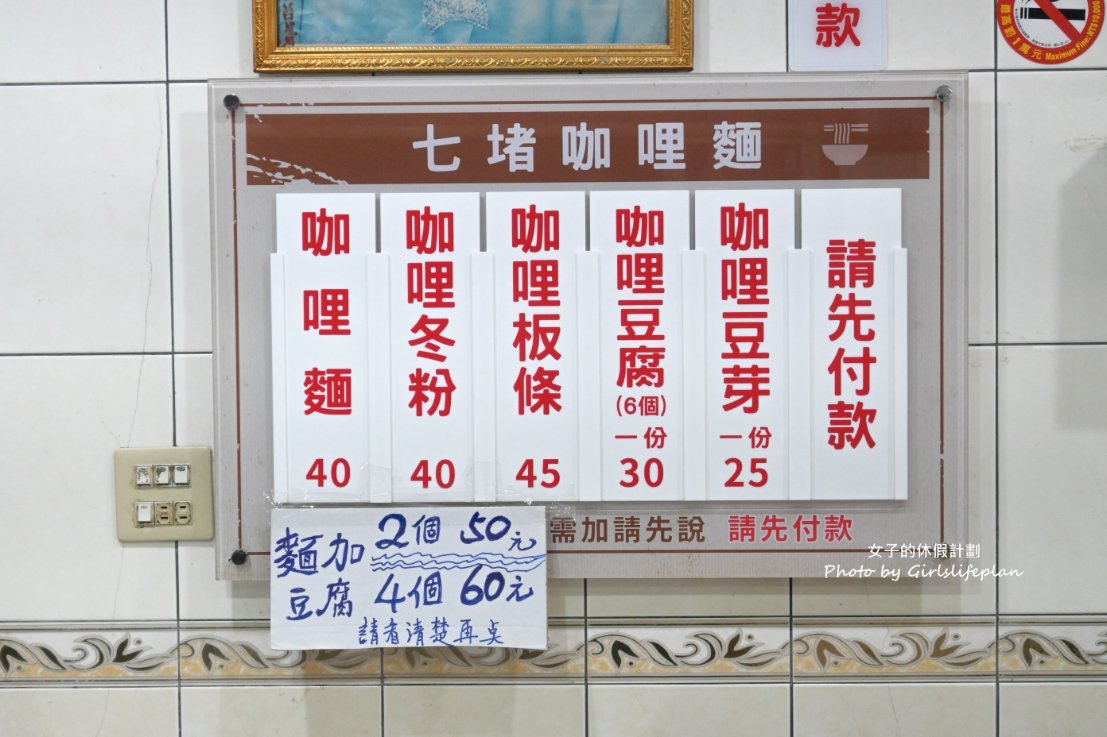 款
最高罰1萬元 Maximum Fine: NT$10,000
七堵咖哩麵
咖哩麵
40
咖哩冬粉
40
咖哩板條
45
咖哩豆腐
(6個)
一份
30
咖哩豆芽
一份
25
請先付款
需加請先說 請先付款
麵加
豆腐
2個 50元
4個 60元
請看清楚再桌
女子的休假計劃
Photo by Girlslifeplan